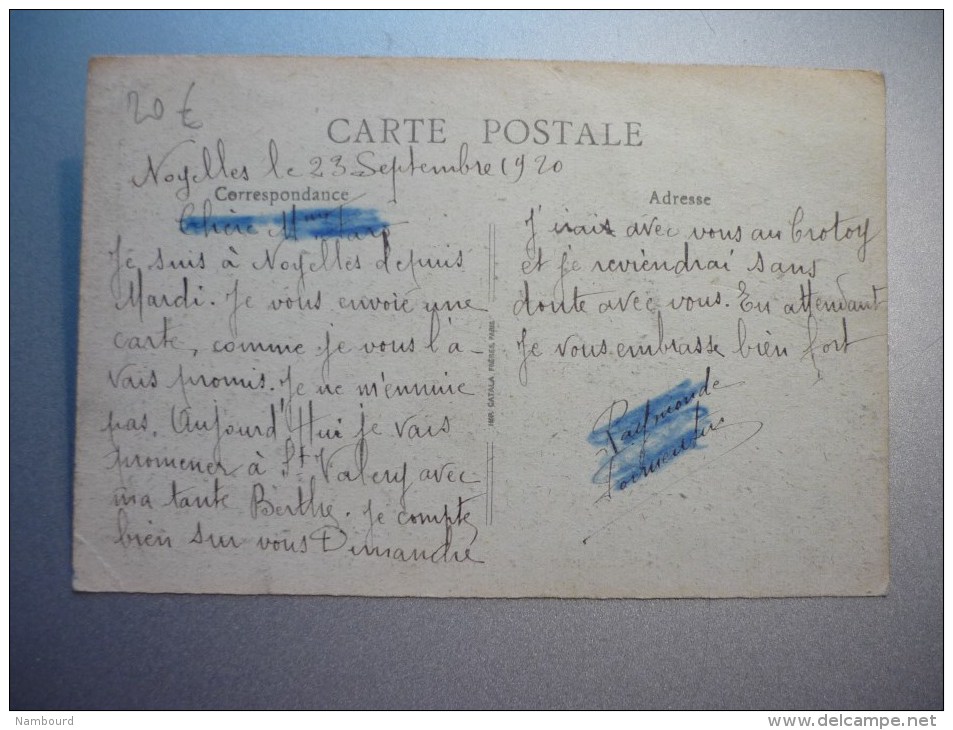 20 €
CARTE POSTALE
Noyelles le 23 Septembre 1920
Correspondance
Chère
Je suis à Noyelles depuis
Mardi. Je vous envoie une
carte, comme je vous l'a-
vais promis. Je ne m'ennuie
pas. Aujourd'Hui je vais
promener à St Valery avec
ma tante Berthe. Je compte
bien sur vous Dimanche
Adresse
J'irais avec vous au Crotoy
et je reviendrai sans
doute avec vous. En attendant
Je vous embrasse bien fort
Raymonde
IMP. CATALA FRÈRES, PARIS
Nambourd
www.delcampe.net